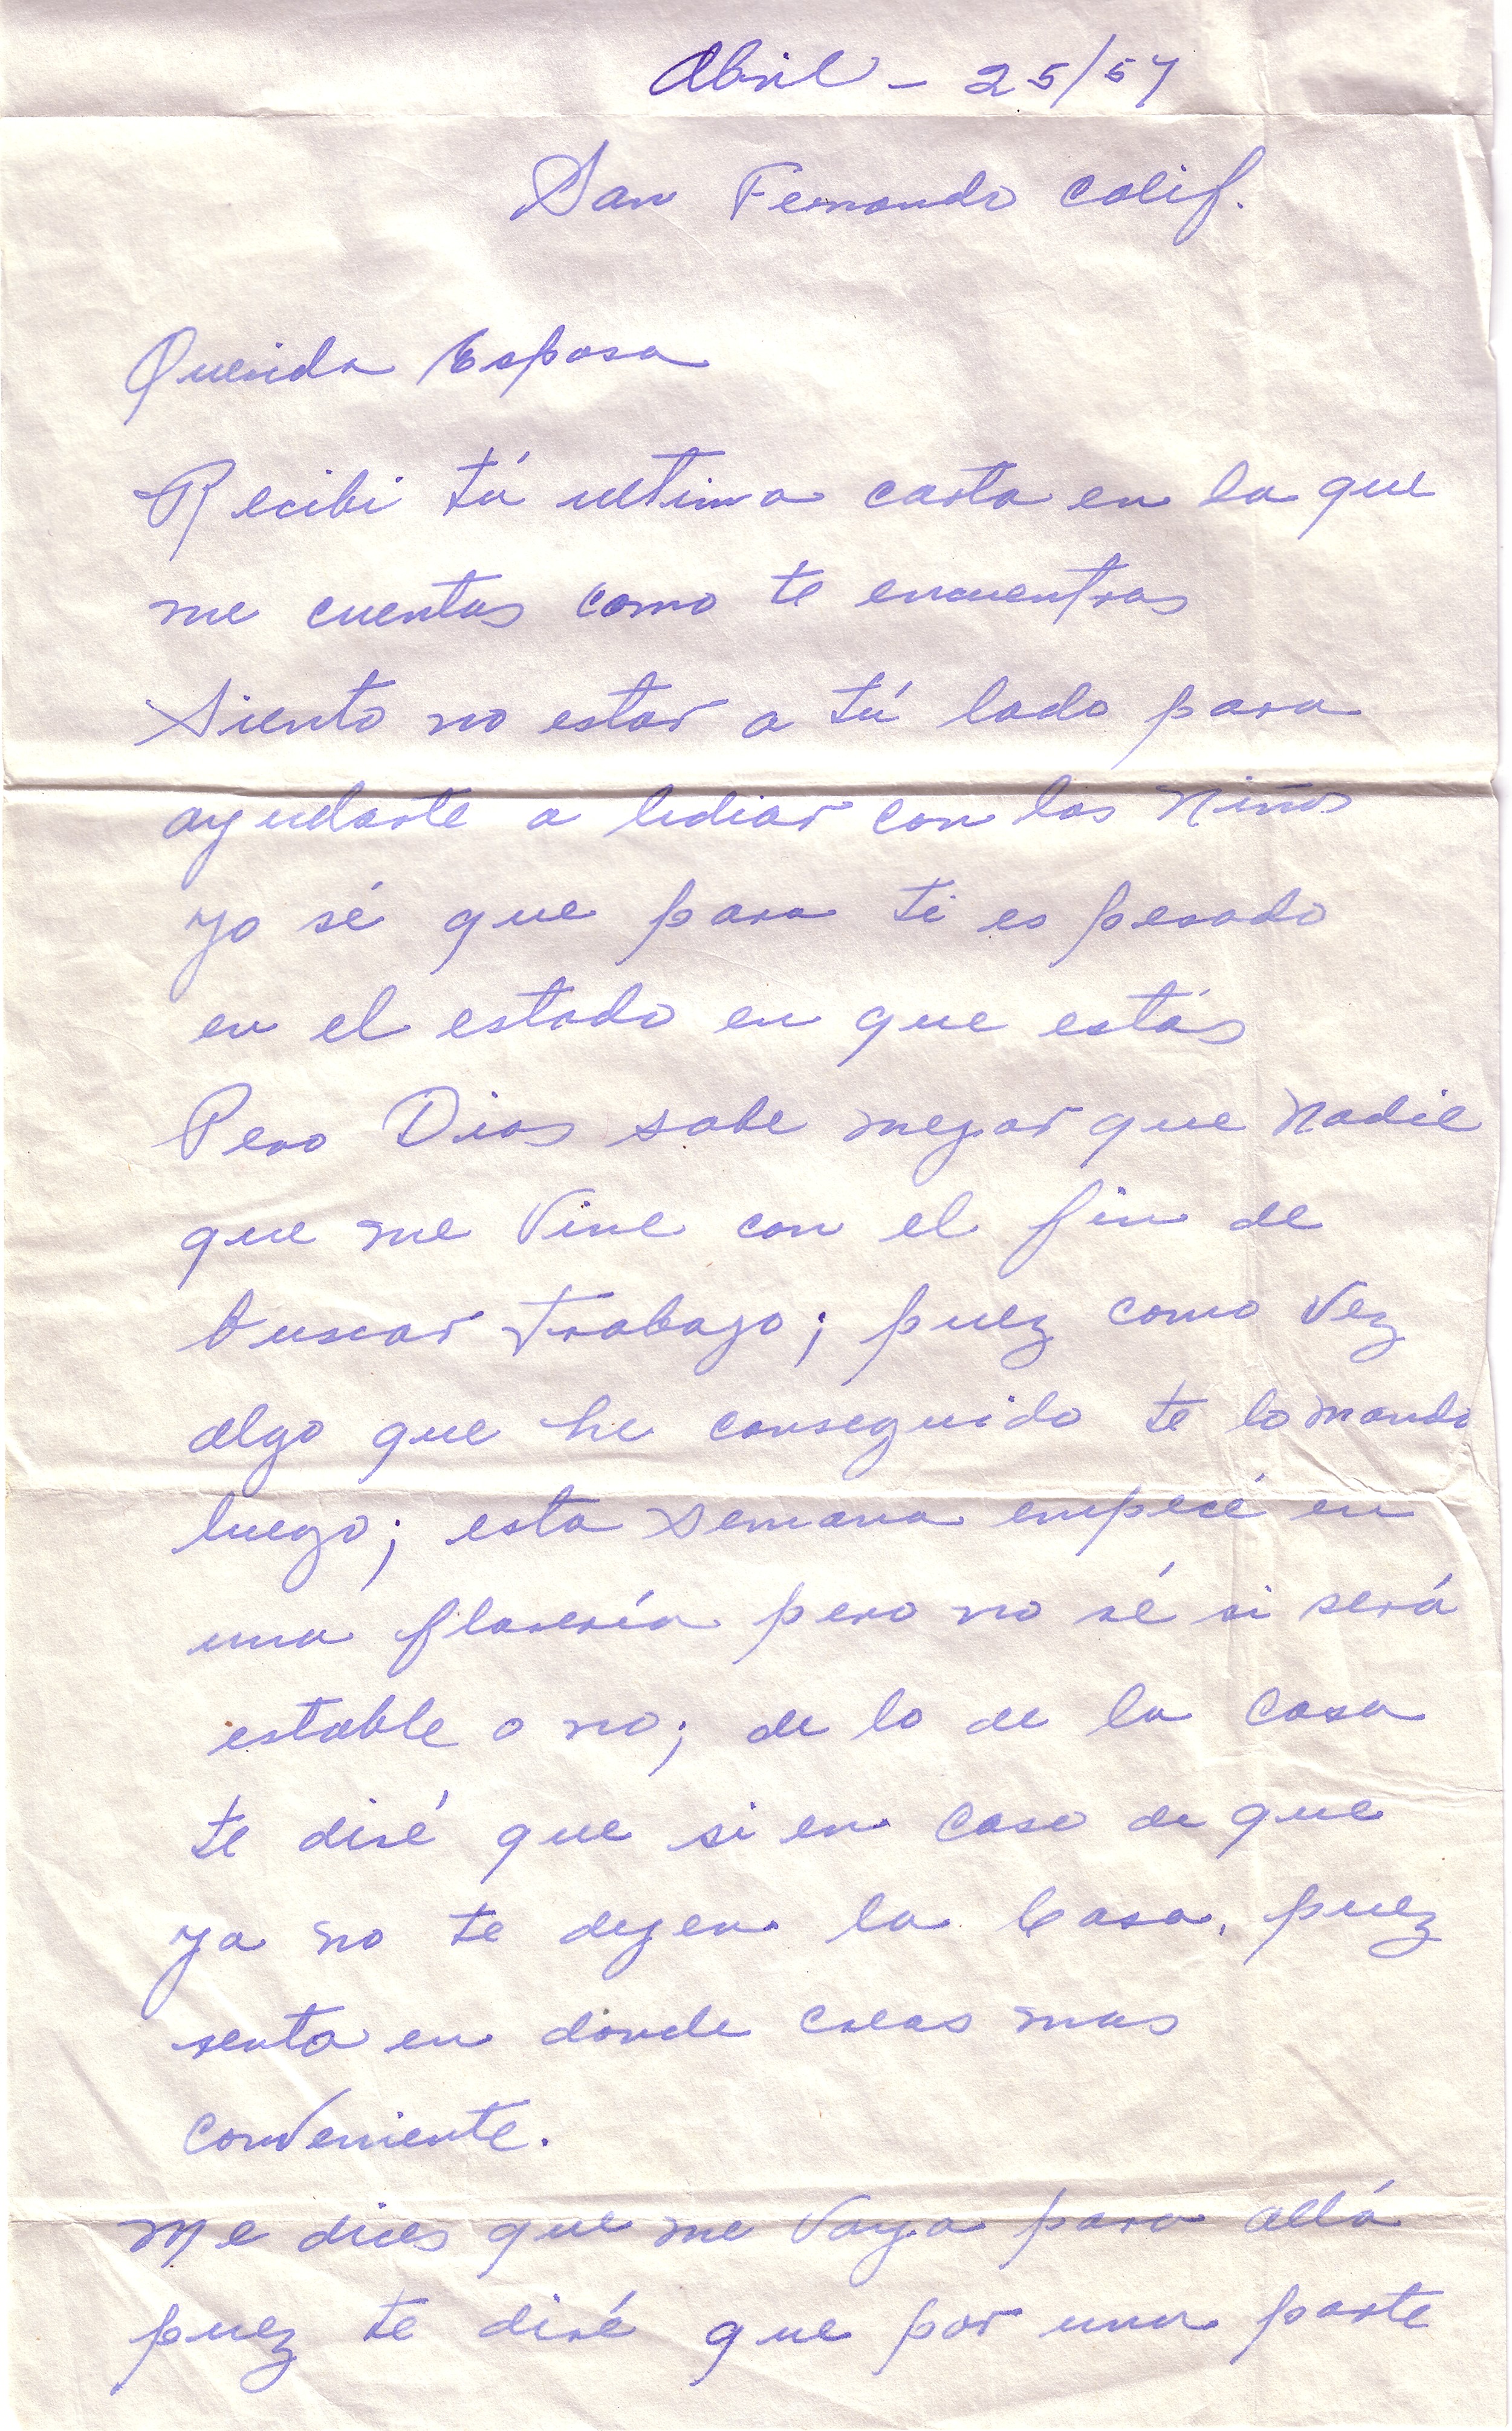 Abril - 25/57
San Fernando Calif.
Querida Esposa
Recibi tú ultima carta en la que
me cuentas como te encuentras
Siento no estar a tú lado para
ayudarte a lidiar con los niños
yo sé que para ti es pesado
en el estado en que estás
Pero Dios sabe mejor que nadie
que me vine con el fin de
buscar trabajo; puez como vez
algo que he conseguido te lo mando
luego; esta semana empecé en
una florería pero no sé si será
estable o no; de lo de la casa
te diré que si en caso de que
ya no te dejen la Casa, puez
renta en donde creas mas
conveniente.
Me dices que me vaya para allá
puez te diré que por una parte